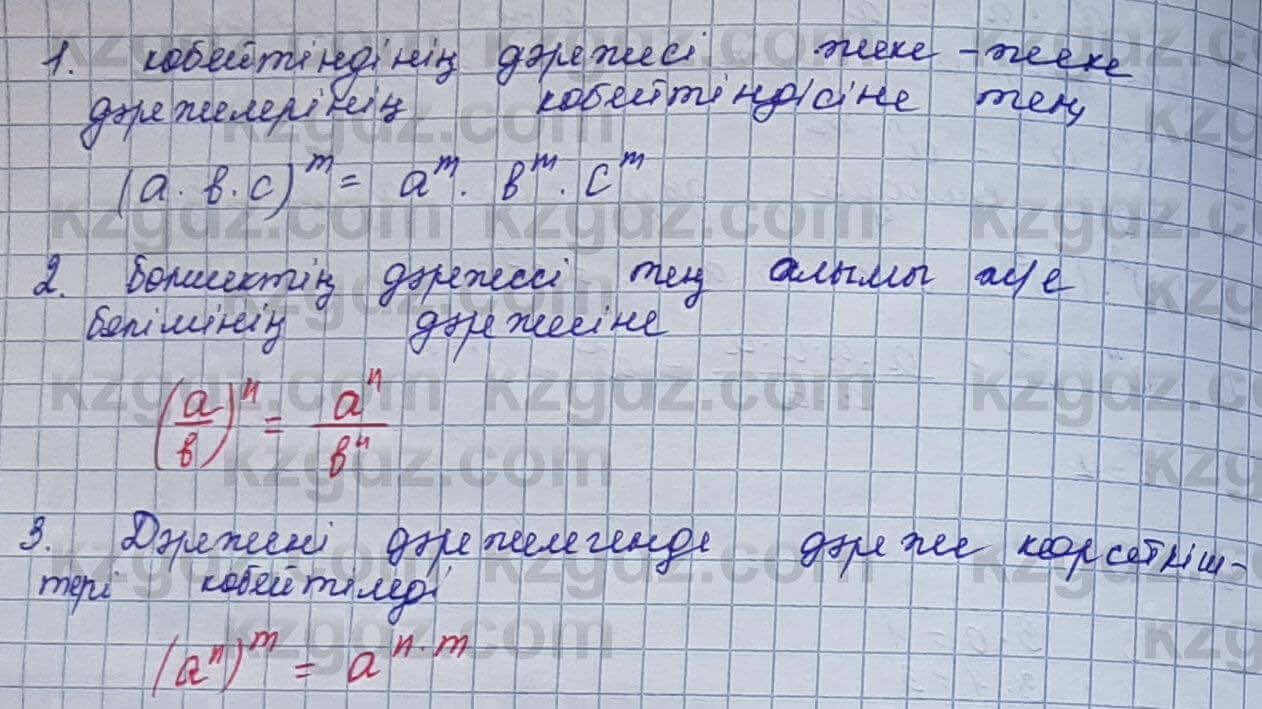 1. кобейтіндінің дәрежесі жеке - жеке
дәрежелерінің кобейтіндісіне тең
(a · b · c)^m = a^m · b^m · c^m
2. Бөлшектің дәрежесі тең алымы ж/е
бөлімінің дәрежесіне
(a/b)^n = a^n/b^n
3. Дәрежені дәрежелегенде дәреже көрсеткіш-
тері кобейтіледі
(a^n)^m = a^n·m
kzgdz.com